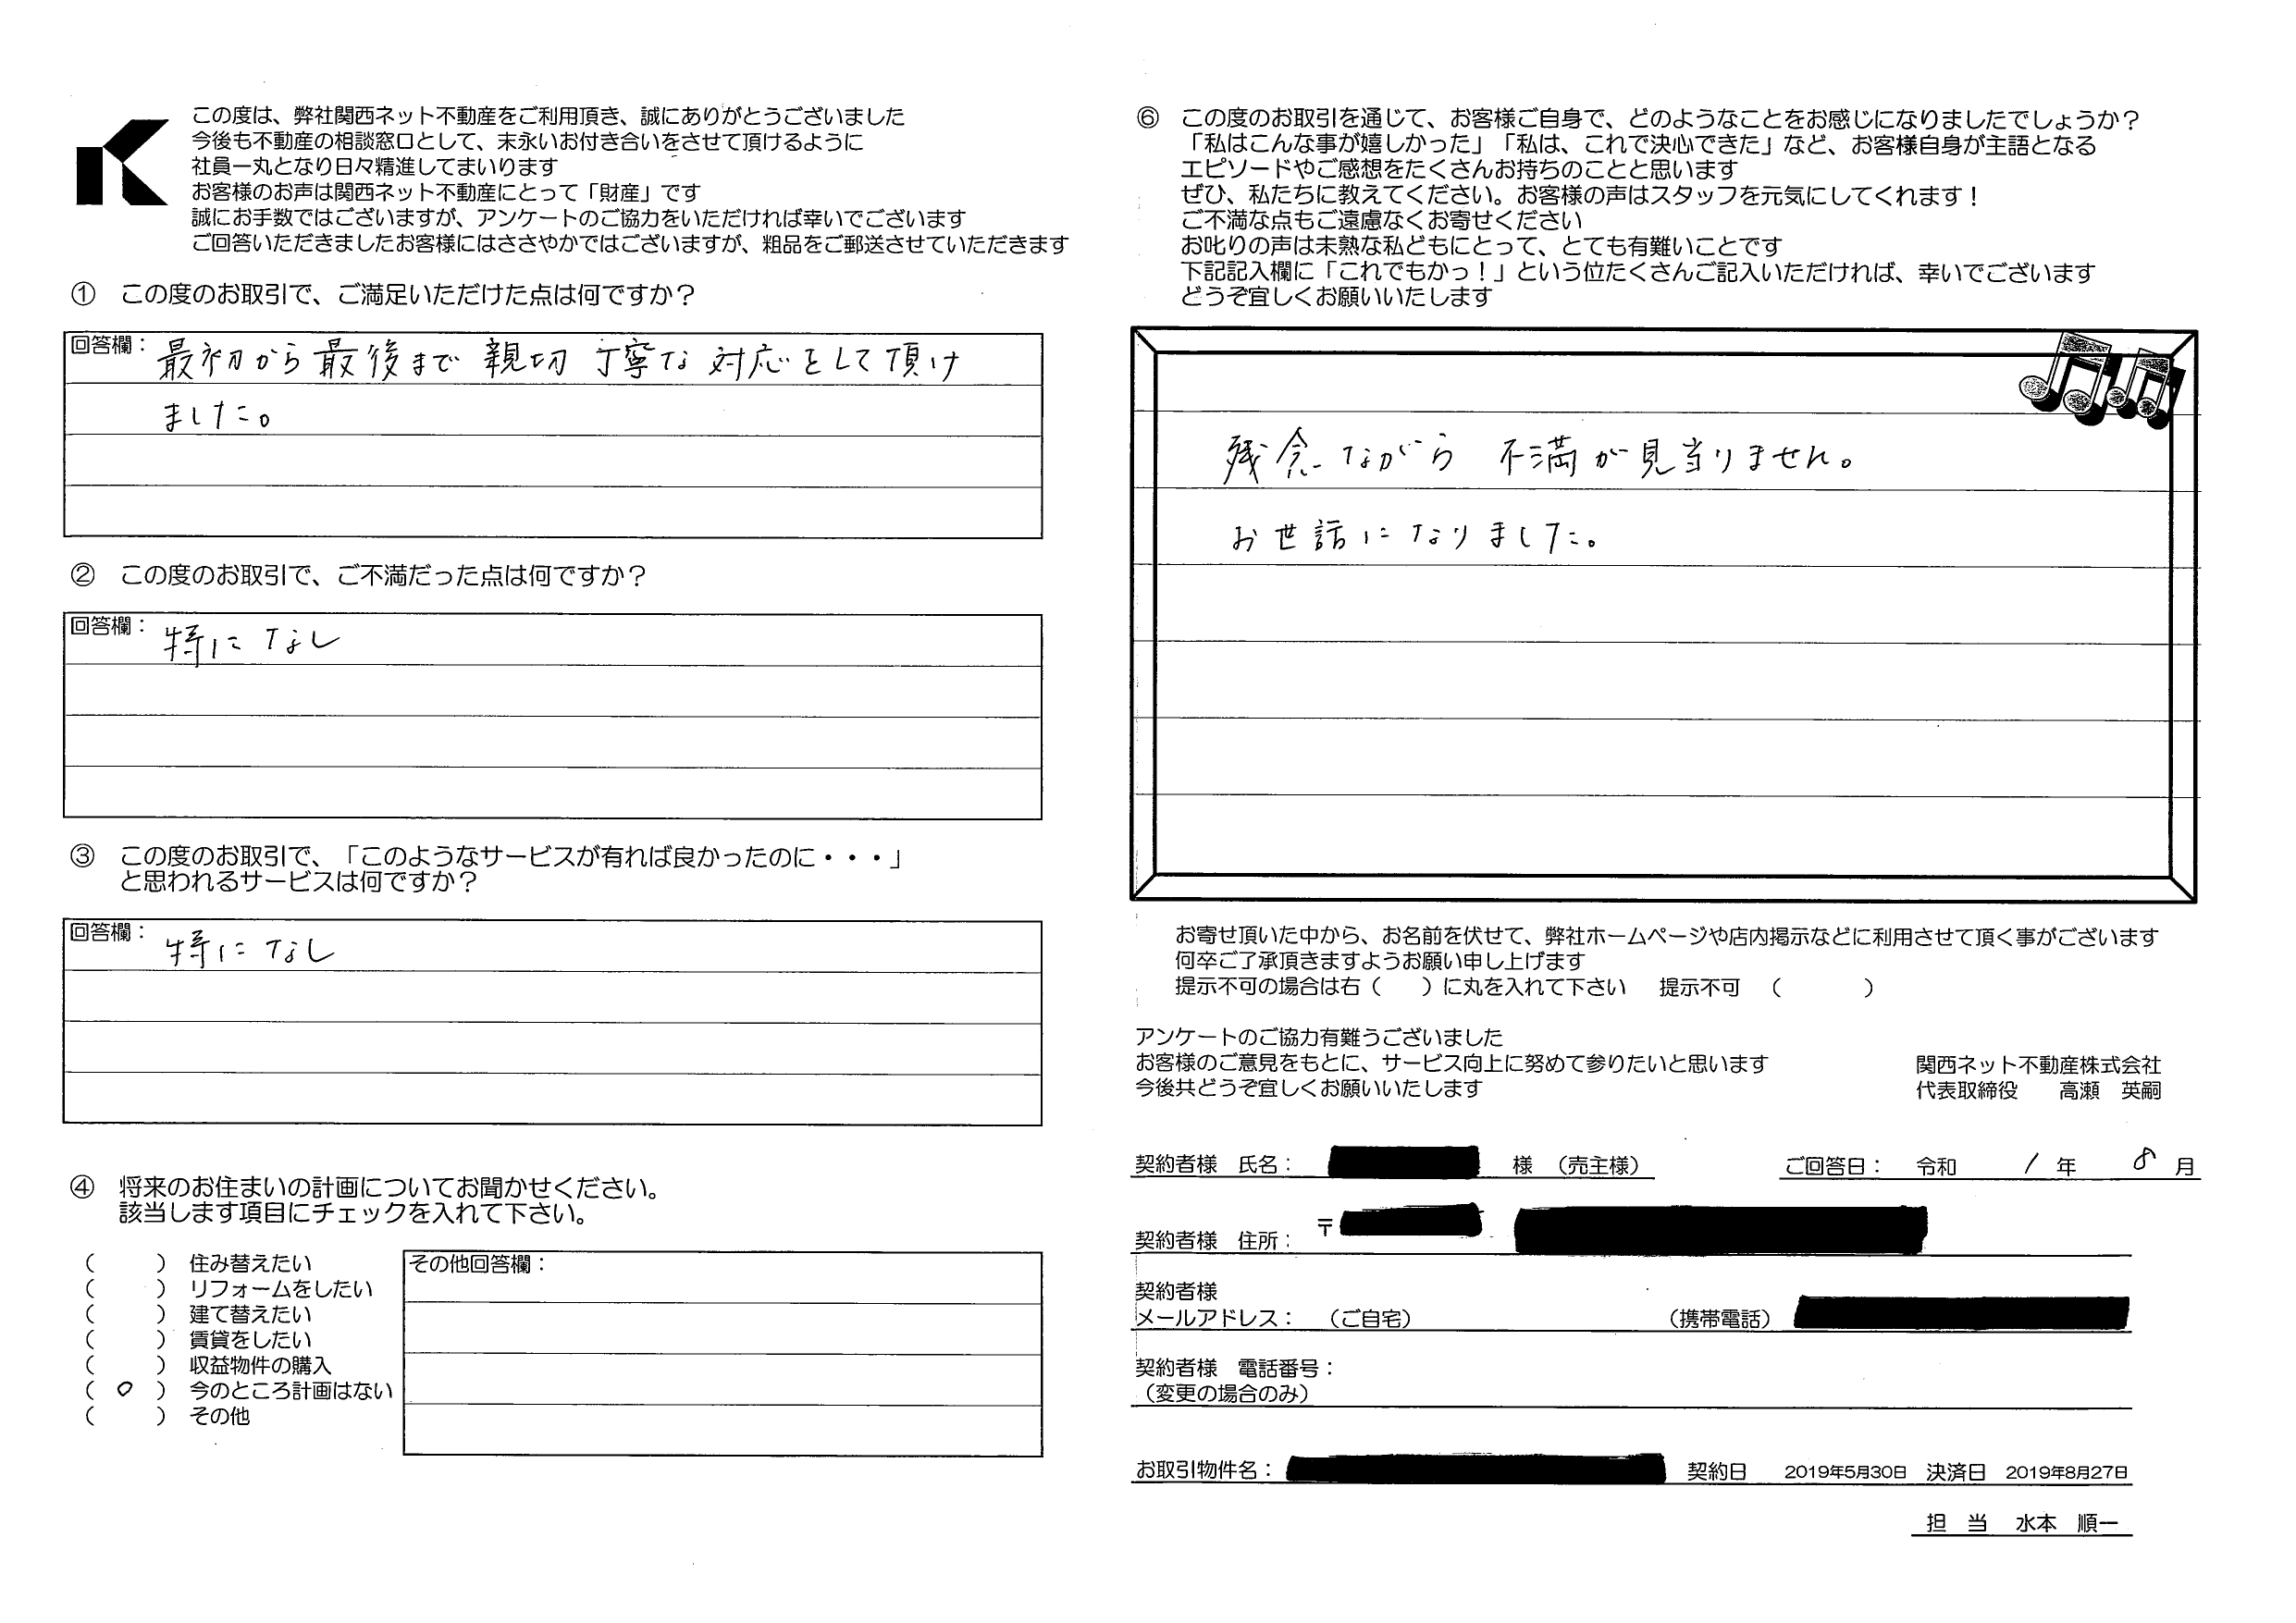 この度は、弊社関西ネット不動産をご利用頂き、誠にありがとうございました
今後も不動産の相談窓口として、末永いお付き合いをさせて頂けるように
社員一丸となり日々精進してまいります
お客様のお声は関西ネット不動産にとって「財産」です
誠にお手数ではございますが、アンケートのご協力をいただければ幸いでございます
ご回答いただきましたお客様にはささやかではございますが、粗品をご郵送させていただきます
① この度のお取引で、ご満足いただけた点は何ですか？
回答欄： 最初から最後まで 親切 丁寧な 対応をして頂け
ました。
② この度のお取引で、ご不満だった点は何ですか？
回答欄： 特になし
③ この度のお取引で、「このようなサービスが有れば良かったのに・・・」
と思われるサービスは何ですか？
回答欄： 特になし
④ 将来のお住まいの計画についてお聞かせください。
該当します項目にチェックを入れて下さい。
（　　） 住み替えたい
（　　） リフォームをしたい
（　　） 建て替えたい
（　　） 賃貸をしたい
（　　） 収益物件の購入
（ ○ ） 今のところ計画はない
（　　） その他
その他回答欄：
⑥ この度のお取引を通じて、お客様ご自身で、どのようなことをお感じになりましたでしょうか？
「私はこんな事が嬉しかった」「私は、これで決心できた」など、お客様自身が主語となる
エピソードやご感想をたくさんお持ちのことと思います
ぜひ、私たちに教えてください。お客様の声はスタッフを元気にしてくれます！
ご不満な点もご遠慮なくお寄せください
お叱りの声は未熟な私どもにとって、とても有難いことです
下記記入欄に「これでもかっ！」という位たくさんご記入いただければ、幸いでございます
どうぞ宜しくお願いいたします
残念ながら 不満が見当りません。
お世話になりました。
お寄せ頂いた中から、お名前を伏せて、弊社ホームページや店内掲示などに利用させて頂く事がございます
何卒ご了承頂きますようお願い申し上げます
提示不可の場合は右（　　）に丸を入れて下さい　提示不可　（　　　　）
アンケートのご協力有難うございました
お客様のご意見をもとに、サービス向上に努めて参りたいと思います
今後共どうぞ宜しくお願いいたします
関西ネット不動産株式会社
代表取締役　高瀬　英嗣
契約者様　氏名：　様　（売主様）　ご回答日：　令和　1　年　8　月
契約者様　住所：　〒
契約者様
メールアドレス：　（ご自宅）　（携帯電話）
契約者様　電話番号：
（変更の場合のみ）
お取引物件名：　契約日　2019年5月30日　決済日　2019年8月27日
担　当　水本　順一